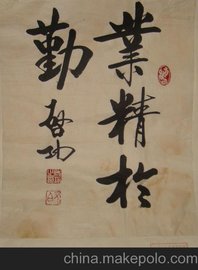 業精於
勤
啟功
china.makepolo.com